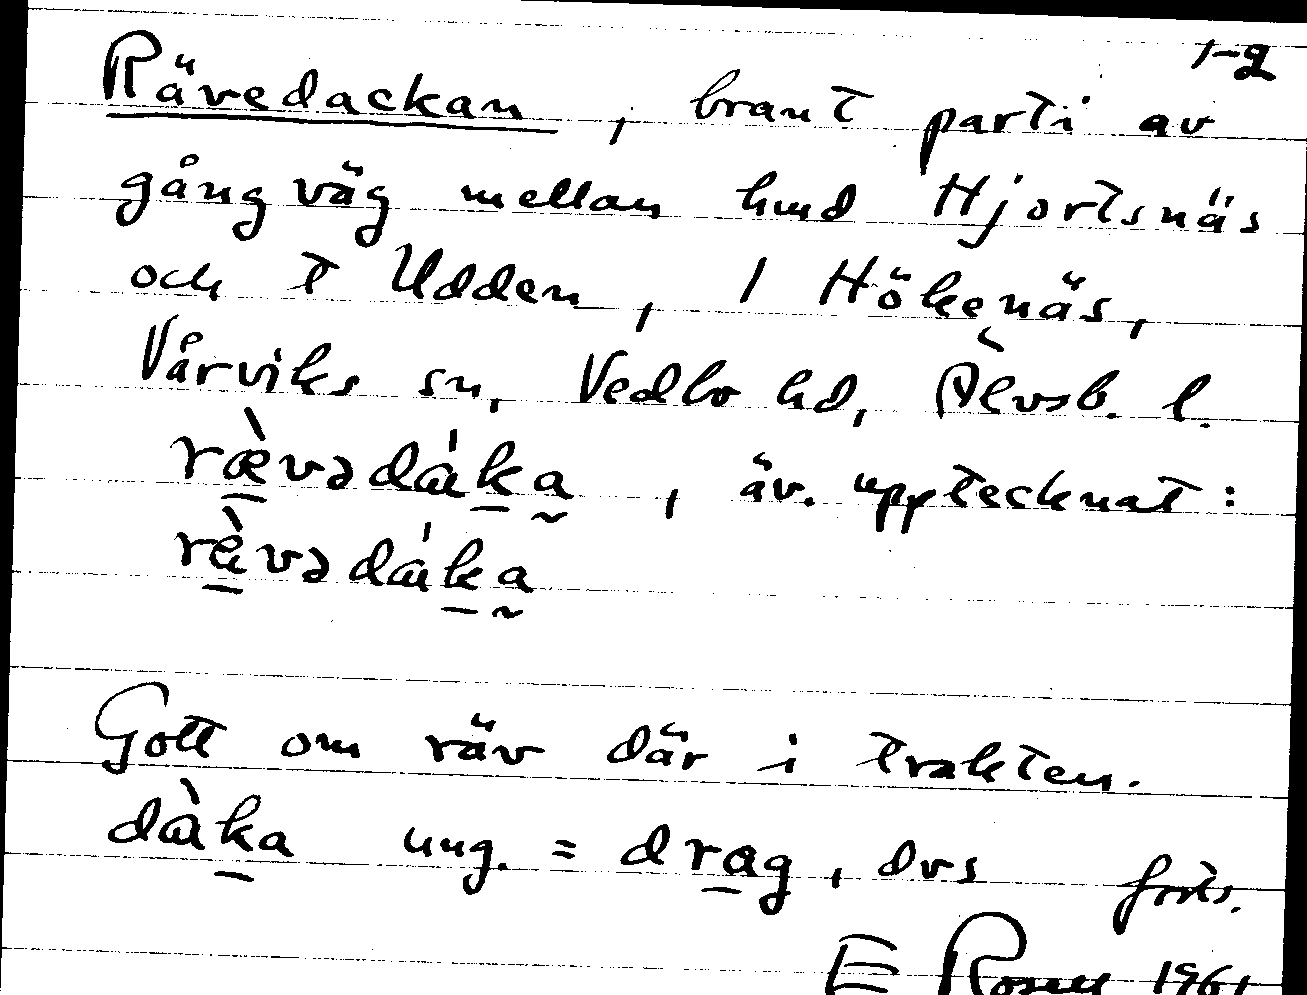 1-2
Rävedackan, brant parti av
gångväg mellan hmd Hjortsnäs
och t Udden, 1 Hökenäs,
Vårviks sn, Vedbo hd, Älvsb. l.
ræ̀vədákа, äv. upptecknat:
rɛ̀vədáka
Gott om räv där i trakten.
dàka ung. = drag, dvs forts.
1961